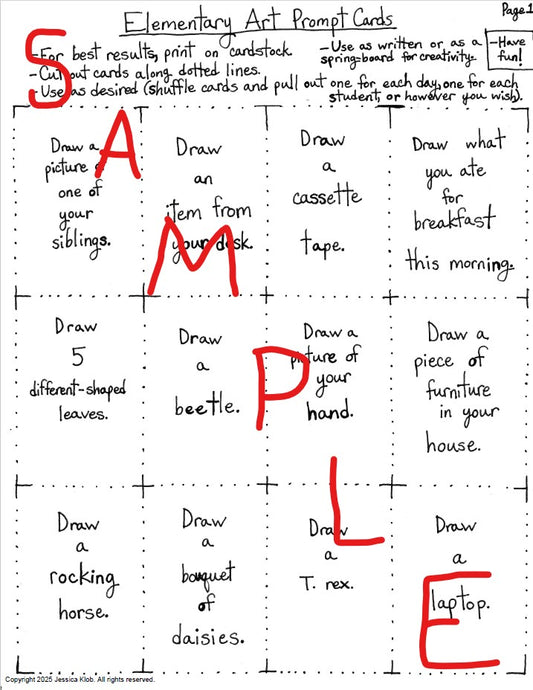 Elementary Art Prompt Cards
Page 1
-For best results, print on cardstock.
-Cut out cards along dotted lines.
-Use as desired (shuffle cards and pull out one for each day, one for each
student, or however you wish).
-Use as written or as a
spring-board for creativity.
-Have
fun!
SAMPLE
Draw a
picture of
one of
your
siblings.
Draw
an
item from
your desk.
Draw
a
cassette
tape.
Draw what
you ate
for
breakfast
this morning.
Draw
5
different-shaped
leaves.
Draw
a
beetle.
Draw a
picture of
your
hand.
Draw a
piece of
furniture
in your
house.
Draw
a
rocking
horse.
Draw
a
bouquet
of
daisies.
Draw
a
T. rex.
Draw
a
laptop.
Copyright 2025 Jessica Klob. All rights reserved.